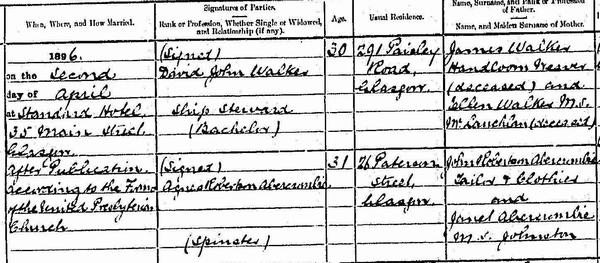 Name, Surname, and Rank or Profession
of Father.
Name, and Maiden Surname of Mother.
When, Where, and How Married.
Signatures of Parties.
Rank or Profession, Whether Single or Widowed,
and Relationship (if any).
Age.
Usual Residence.
1896.
on the Second
day of April
at Standard Hotel,
35 Main Street
Glasgow.
After Publication,
according to the Forms
of the United Presbyterian
Church
(Signed)
David John Walker
Ship Steward
(Bachelor)
30
291 Paisley
Road,
Glasgow.
James Walker
Handloom Weaver
(deceased) and
Ellen Walker M.S.
McLauchlan (deceased)
(Signed)
Agnes Roberton Abercrombie
(Spinster)
31
26 Paterson
Street,
Glasgow.
John Roberton Abercrombie
Tailor & Clothier
and
Janet Abercrombie
M.S. Johnston